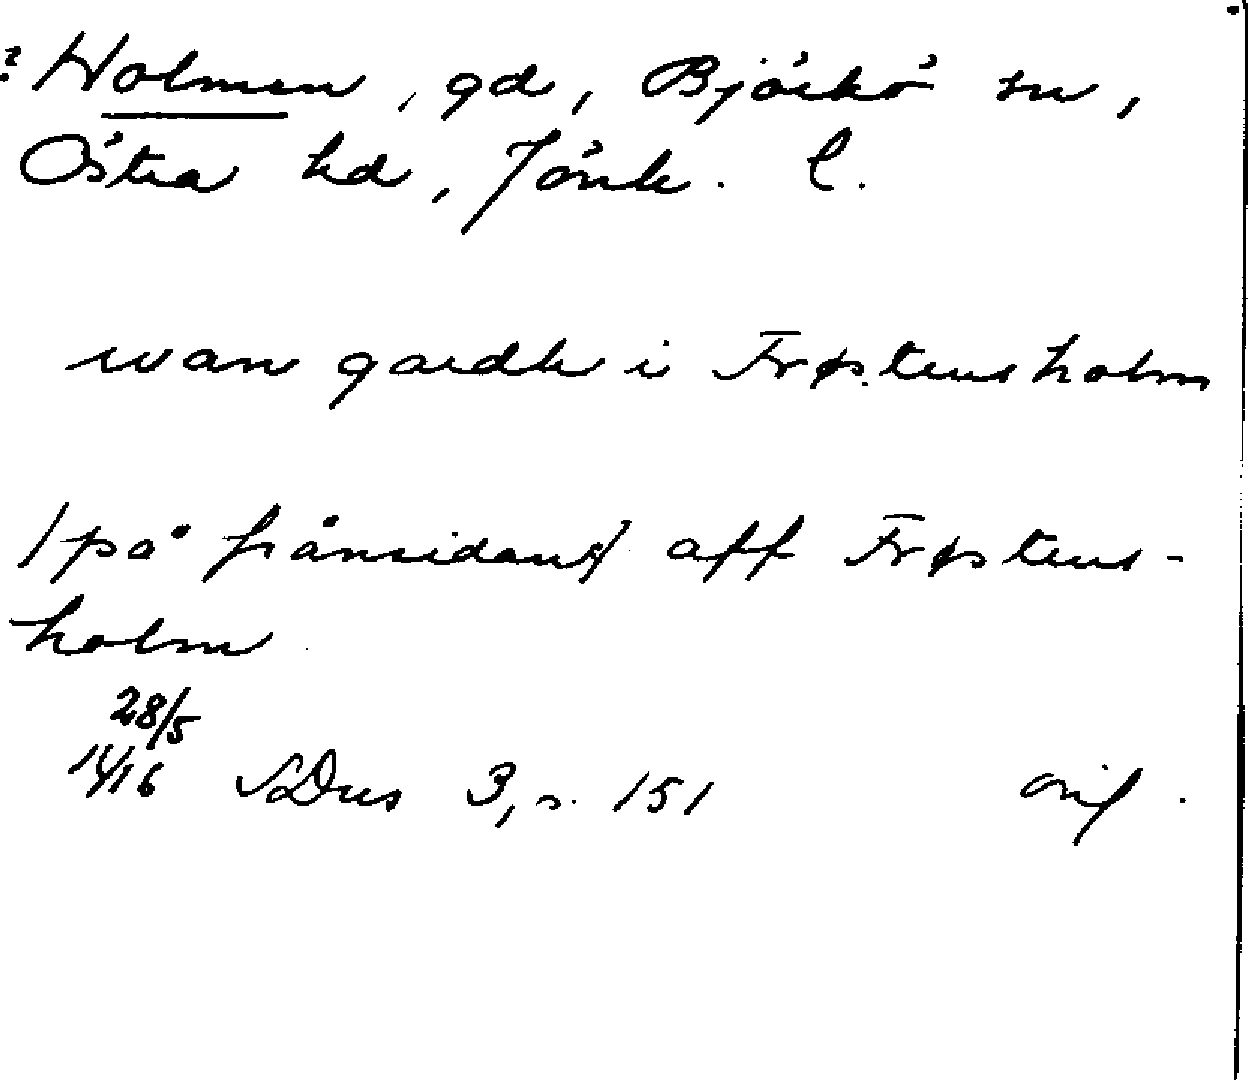 ? Holmen, gd, Björkö sn,
Östra hd, Jönk. l.
wan gardh i Frøstensholm
/på frånsidan/ aff Frøstens-
holm
28/5
1416 SDns 3, s. 151 orig.